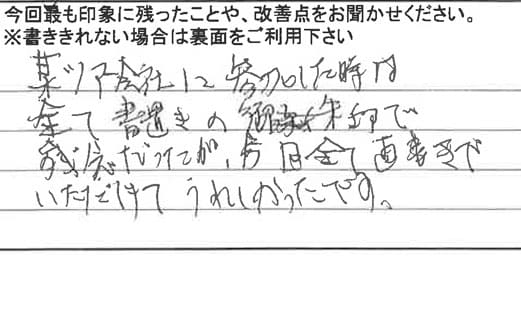 今回最も印象に残ったことや、改善点をお聞かせください。
※書ききれない場合は裏面をご利用下さい
某ツアー会社に参加した時は
全て書置きの御朱印で
残念だってたが、今日全て直書きで
いただけてうれしかったです。